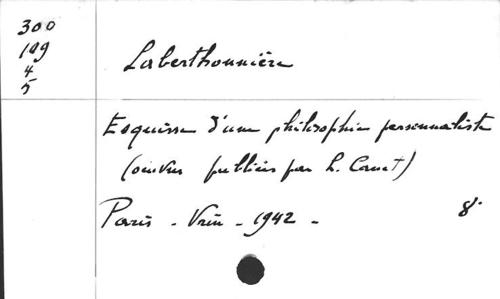 300
109
4
5
Laberthonnière
Esquisse d'une philosophie personnaliste
(œuvres publiées par L. Canet)
Paris - Vrin - 1942 - 8°